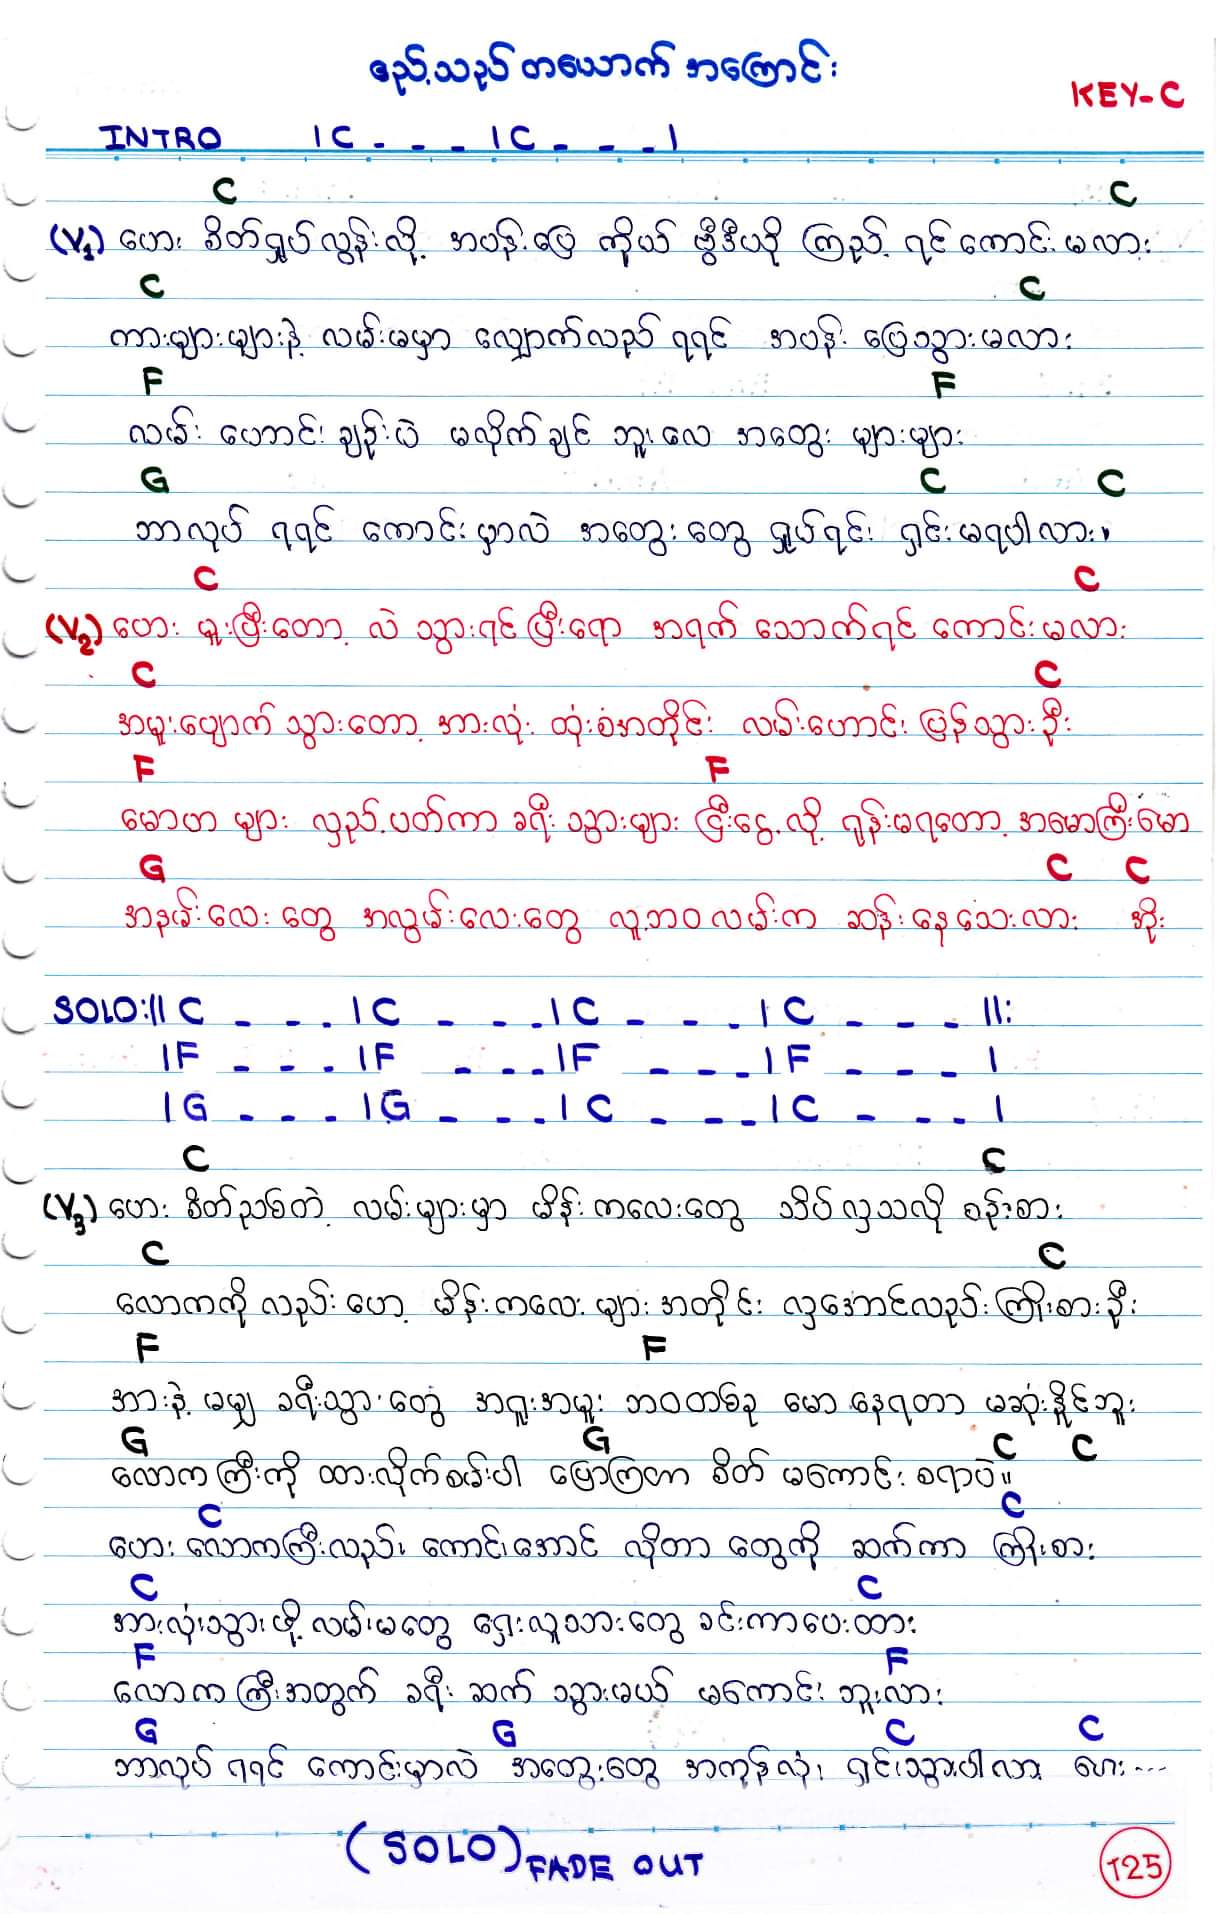 ဧည့်သည်တယောက်အကြောင်း
KEY-C
INTRO | C - - - | C - - - |
C C
(V₁) ဟေး စိတ်ရှုပ်လွန်းလို့ အပန်းဖြေ ကိုယ် ဗွီဒီယို ကြည့် ရင် ကောင်းမလား
C C
ကားများများနဲ့ လမ်းမမှာ လျှောက်လည် ရရင် အပန်း ဖြေသွားမလား
F F
လမ်း ဟောင်း ချည်းပဲ မလိုက်ချင် ဘူးလေ အတွေး များများ
G C C
ဘာလုပ် ရရင် ကောင်းမှာလဲ အတွေးတွေ ရှုပ်ရင်း ရှင်းမရပါလား
C C
(V₂) ဟေး မူးပြီးတော့ လဲ သွားရင် ပြီးရော အရက် သောက်ရင် ကောင်းမလား
C C
အမူးပျောက် သွားတော့ အားလုံး ထုံးစံအတိုင်း လမ်းဟောင်း ပြန်သွားဦး
F F
မောဟ များ လှည့်ပတ်ကာ ခရီး သွားများ ငြီးငွေ့လို့ ရုန်းမရတော့ အမောကြီးမော
G C C
အနမ်းလေးတွေ အလွမ်းလေးတွေ လူ့ဘဝလမ်းက ဆန်းနေသေးလား အိုး
SOLO:|| C - - - | C - - - | C - - - | C - - - ||:
| F - - - | F - - - | F - - - | F - - - |
| G - - - | G - - - | C - - - | C - - - |
C C
(V₃) ဟေး စိတ်ညစ်တဲ့ လမ်းများမှာ မိန်းကလေးတွေ သိပ်လှသလို စဉ်းစား
C C
လောကကို လည်း ဟော့ မိန်းကလေး များ အတိုင်း လှအောင်လည်းကြိုးစားဦး
F F
အားနဲ့ မမျှ ခရီးသွားတွေ အရူးအမူး ဘဝတစ်ခု မော နေရတာ မဆုံးနိုင်ဘူး
G G C C
လောကကြီးကို ထားလိုက်စမ်းပါ ပြောကြတာ စိတ် မကောင်းစရာပဲ။
C C
ဟေး လောကကြီးလည်း ကောင်းအောင် လိုတာ တွေကို ဆက်ကာ ကြိုးစား
C C
အားလုံးသွားဖို့ လမ်းမတွေ ရှေးလူသားတွေ ခင်းကာပေးထား
F F
လောကကြီးအတွက် ခရီး ဆက် သွားမယ် မကောင်းဘူးလား
G G C C
ဘာလုပ် ရရင် ကောင်းမှာလဲ အတွေးတွေ အကုန်လုံး ရှင်းသွားပါလား ဟေး ---
(SOLO) FADE OUT
125